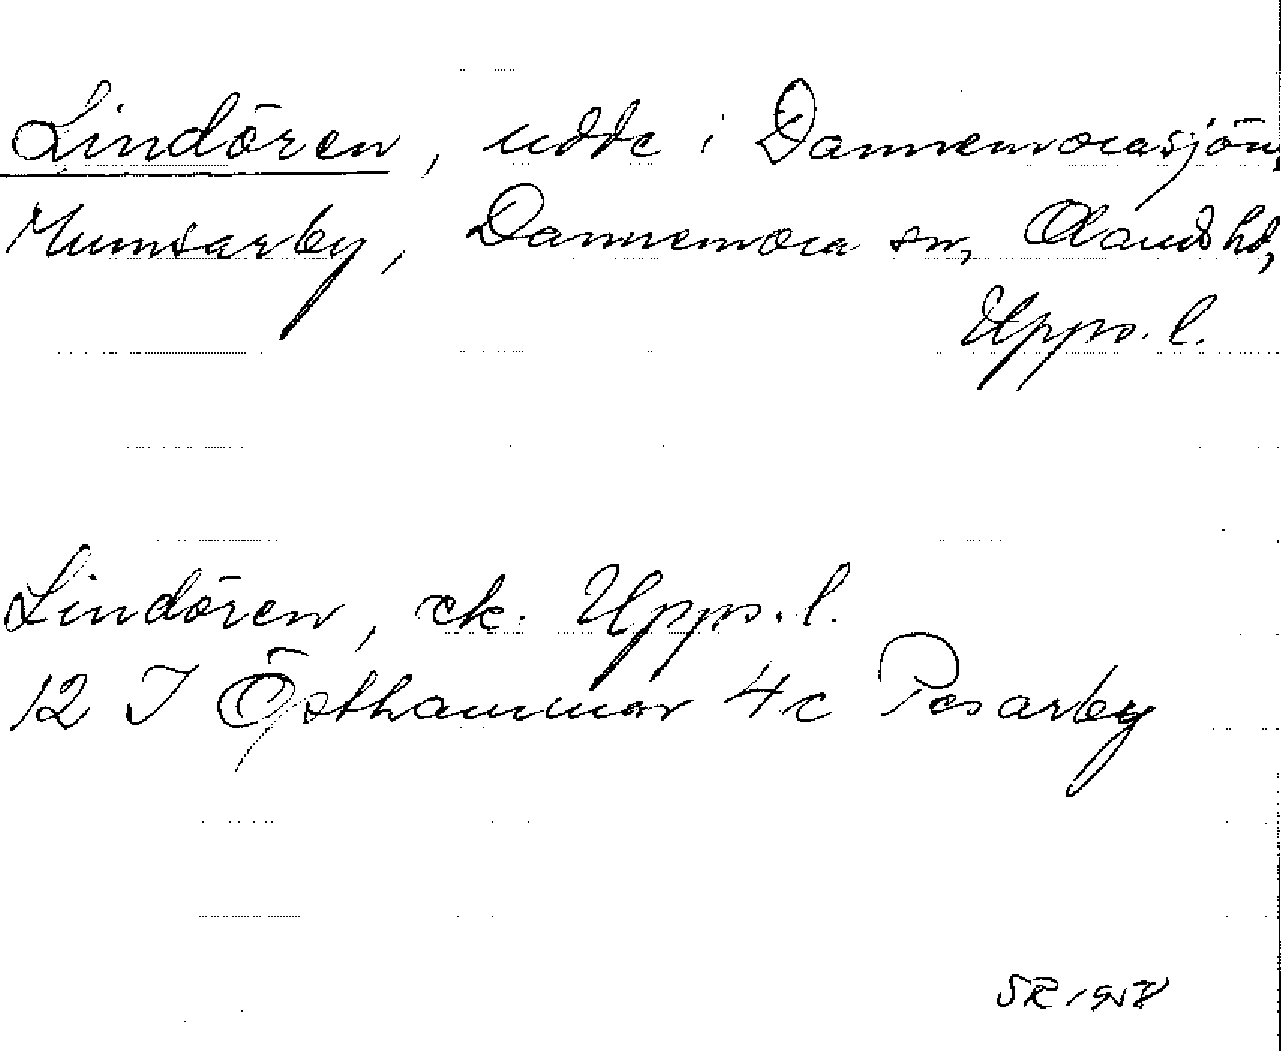 Lindören, udde i Dannemorasjön,
Mumsarby, Dannemora sn, Olands hd,
Upps. l.
Lindören, ek. Upps. l.
12 I Östhammar 4c Pesarby
SR